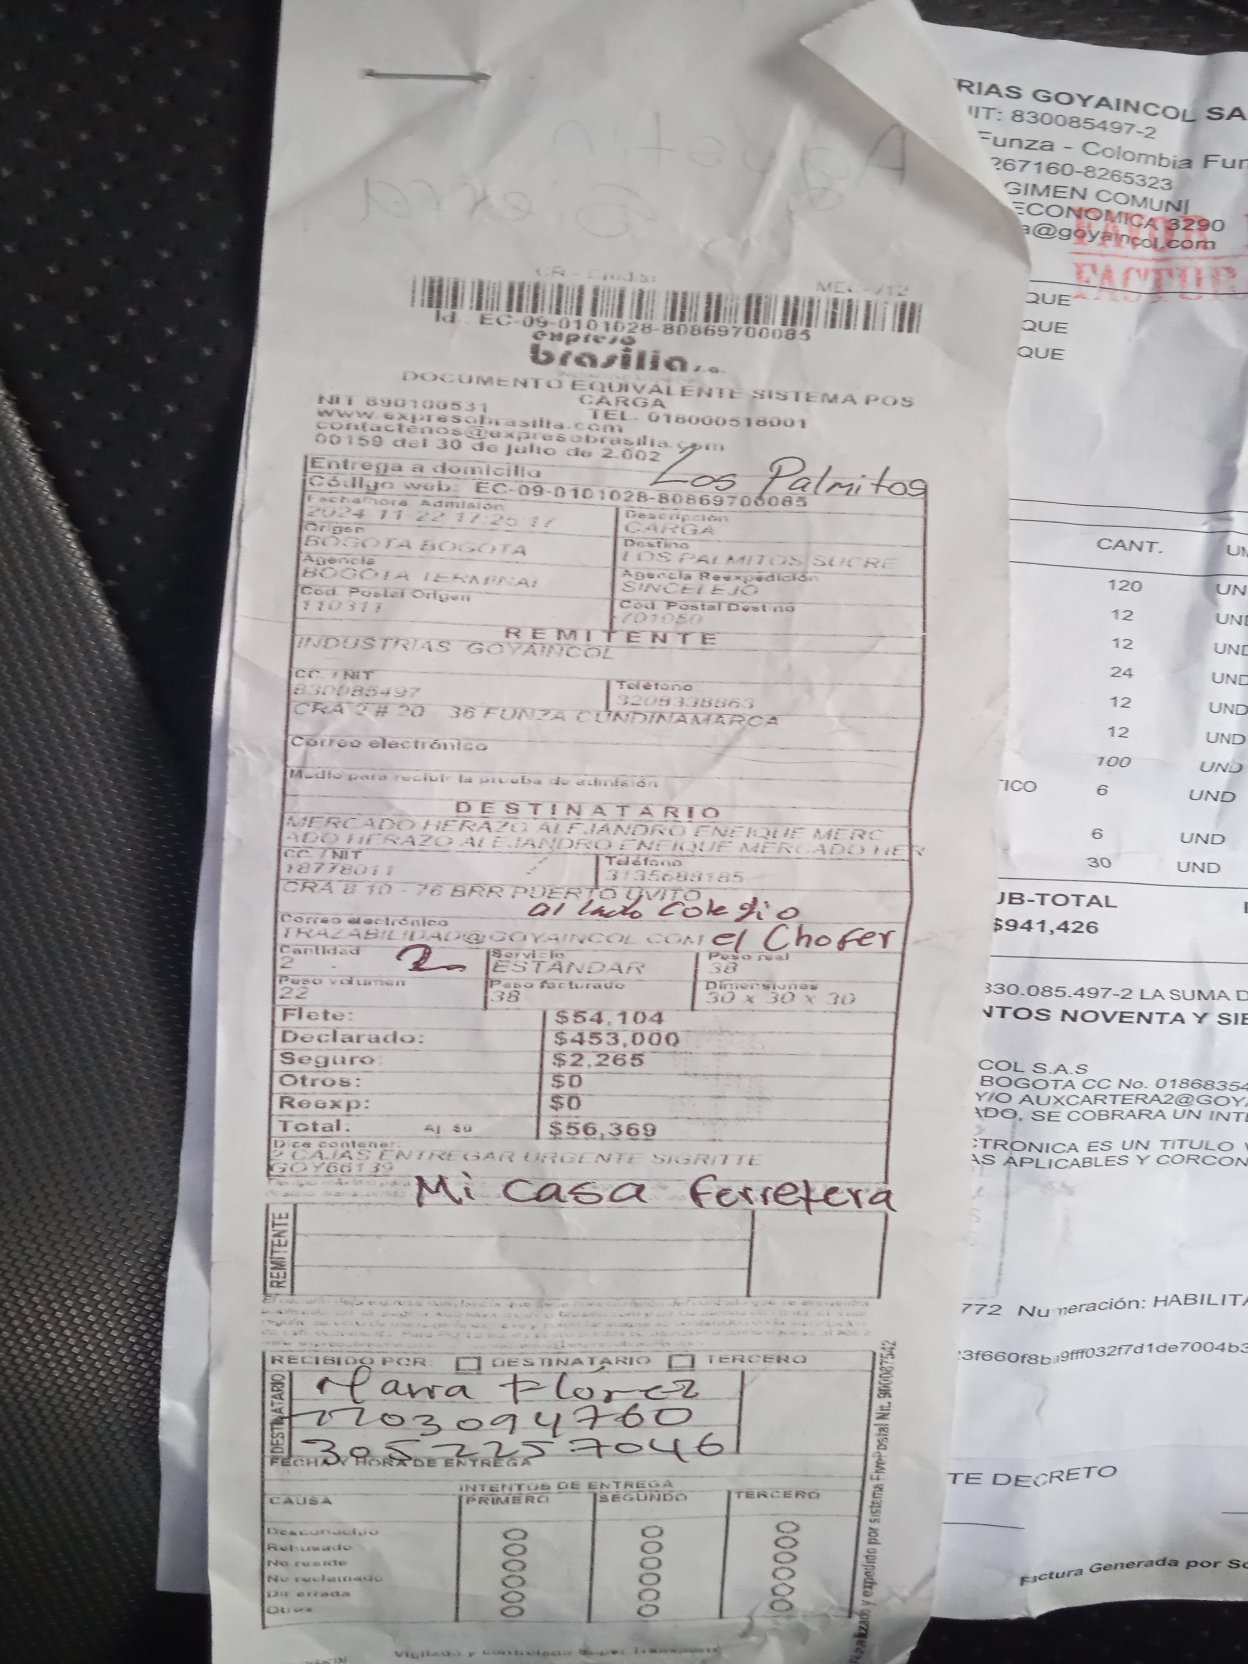 MEC-V12
Id.: EC-09-0101028-80869700085
expreso
brasilia s.a.
DOCUMENTO EQUIVALENTE SISTEMA POS
CARGA
NIT 890100531
TEL. 018000518001
www.expresobrasilia.com
contactenos@expresobrasilia.com
00159 del 30 de julio de 2.002
Los Palmitos
Entrega a domicilio
Código web: EC-09-0101028-80869700085
Fecha/hora Admisión
2024-11-22 17:25:17
Descripción
CARGA
Origen
BOGOTA BOGOTA
Destino
LOS PALMITOS SUCRE
Agencia
BOGOTA TERMINAL
Agencia Reexpedición
SINCELEJO
Cód. Postal Origen
110311
Cód. Postal Destino
701050
REMITENTE
INDUSTRIAS GOYAINCOL
CC. / NIT
830085497
Teléfono
3208338863
CRA 2 # 20 - 36 FUNZA CUNDINAMARCA
Correo electrónico
Medio para recibir la prueba de admisión
DESTINATARIO
MERCADO HERAZO ALEJANDRO ENEIQUE MERC
ADO HERAZO ALEJANDRO ENEIQUE MERCADO HER
CC. / NIT
18778011
Teléfono
3135688185
CRA 8 10 - 76 BRR PUERTO UVITO
al lado Colegio
Correo electrónico
TRAZABILIDAD@GOYAINCOL.COM
el Chofer
Cantidad
2
2
Servicio
ESTANDAR
Peso real
38
Peso volumen
22
Peso facturado
38
Dimensiones
30 x 30 x 30
Flete: $54,104
Declarado: $453,000
Seguro: $2,265
Otros: $0
Reexp: $0
Total: $56,369
Dice contener:
2 CAJAS ENTREGAR URGENTE SIGRITTE
GOY66139
Mi casa Ferretera
REMITENTE
RECIBIDO POR: DESTINATARIO TERCERO
DESTINATARIO
Maria Florez
1103094760
3052257046
FECHA Y HORA DE ENTREGA
INTENTOS DE ENTREGA
CAUSA PRIMERO SEGUNDO TERCERO
Desconocido
Rehusado
No reside
No reclamado
Dir errada
Otros
Realizado y expedido por sistema FivePostal Nit. 900087542
Vigilado y controlado Super Transporte
RIAS GOYAINCOL SA
IIT: 830085497-2
Funza - Colombia Fun
267160-8265323
GIMEN COMUN
ECONOMICA 3290
a@goyaincol.com
FAVOR
FACTUR
QUE
QUE
QUE
CANT. UN
120 UN
12 UND
12 UND
24 UND
12 UND
12 UND
100 UND
TICO 6 UND
6 UND
30 UND
UB-TOTAL
$941,426
330.085.497-2 LA SUMA D
NTOS NOVENTA Y SIE
COL S.A.S
BOGOTA CC No. 01868354
Y/O AUXCARTERA2@GOY
ADO, SE COBRARA UN INT
CTRONICA ES UN TITULO
AS APLICABLES Y CORCON
772 Numeración: HABILITA
TE DECRETO
Factura Generada por